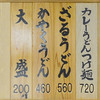 カレーうどんつけ麺
720
ざるうどん
560
かやくうどん
460
大盛
200